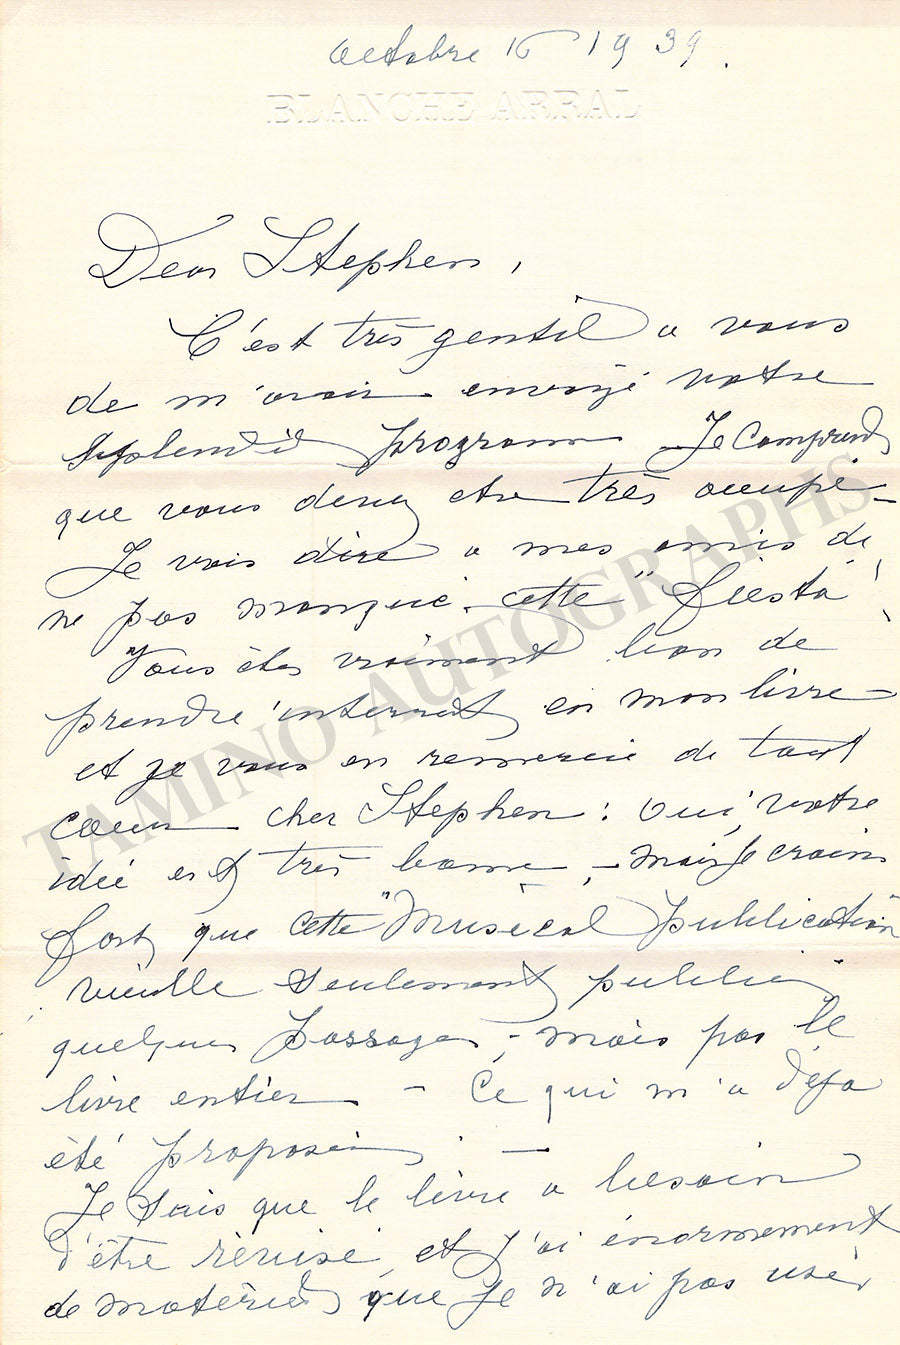 Octobre 16 1939.
BLANCHE ARRAL
Dear Stephen,
C'est très gentil a vous
de m'avoir envoyé votre
splendid program Je comprends
que vous devez etre très occupé -
Je vais dire a mes amis de
ne pas manquer cette "fiesta"!
Vous êtes vraiment bon de
prendre interret en mon livre -
et je vous en remercie de tout
cœur cher Stephen: oui, votre
idée est très bonne, - mais je crains
fort que cette "Musical publication"
vieulle seulement publier
quelques passages, - mais pas le
livre entier - Ce qui m'a déja
été proposé. -
Je sais que le livre a besoin
d'être révisé, et j'ai énormement
de matériel que je n'ai pas usé,
TAMINO AUTOGRAPHS